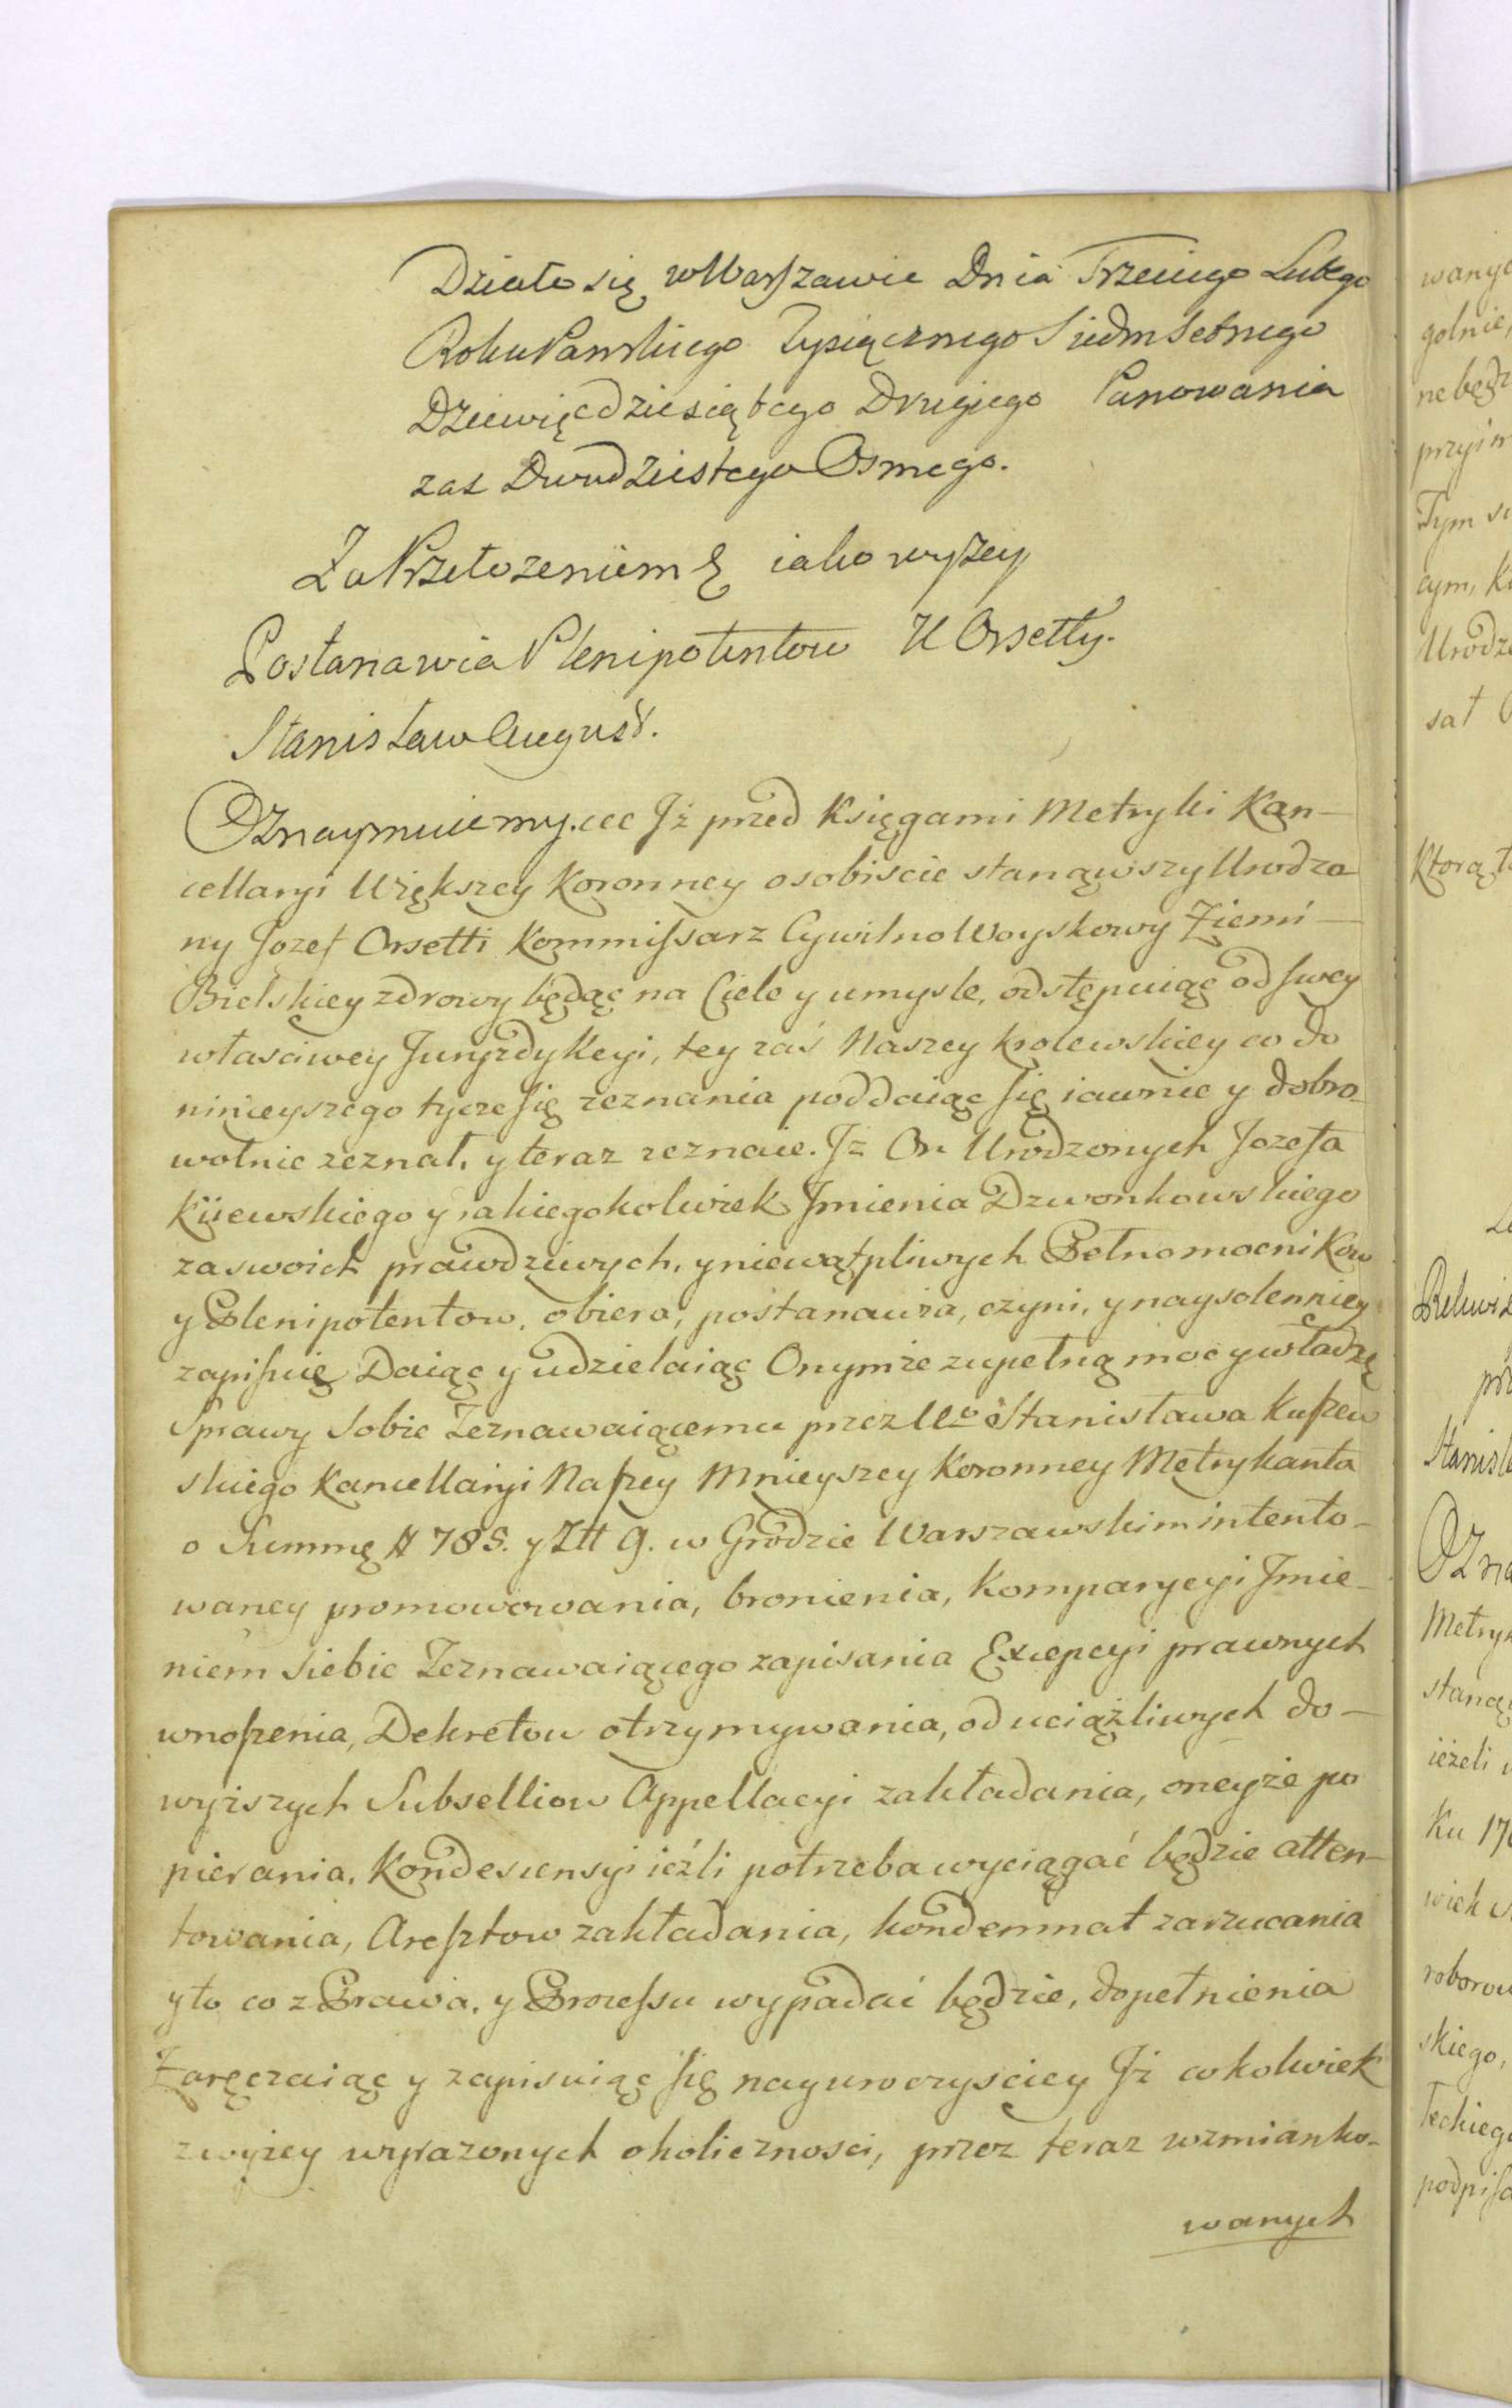 Działo się w Warszawie Dnia Trzeciego Lutego
Roku Panskiego Tysiącznego Siedmsetnego
Dziewięcdziesiątego Drugiego Panowania
zas Dwudziestego Osmego.
Za Przełozeniem & iako wyzey
Postanawia Plenipotentow U Orsetty.
Stanisław August.
Oznaymuiemy. cec Jż przed Księgami Metryki Kan-
cellaryi Większey Koronney osobiscie stanąwszy Urodzo
ny Jozef Orsetti Kommissarz Cywilno Woyskowy Ziemi
Bielskiey zdrowy będąc na Ciele y umysle, odstępuiąc od swey
własciwey Juryzdykcyi, tey zaś Naszey krolewskiey co do
ninieyszego tycze się zeznania poddaiąc się iawnie y dobro-
wolnie zeznał, y teraz zeznaie. Jz On Urodzonych Jozefa
Kiiewskiego y iakiegokolwiek Jmienia Dzwonkowskiego
za swoich prawdziwych, y niewątpliwych Pełnomocnikow
y Plenipotentow, obiera, postanawia, czyni, y naysolenniey
zapisuię Daiąc y udzielaiąc Onymże zupełną moc y władzę
Sprawy Sobie Zeznawaiącemu przez Uo Stanisława Kuszew
skiego Kancellaryi Naszey Mnieyszey Koronney Metrykanta
o Summę # 785. y Ztt 9. w Grodzie Warszawskim intento-
waney promowowania, bronienia, Komparycyi Jmie-
niem Siebie Zeznawaiącego zapisania Excepcyi prawnych
wnoszenia, Dekretow otrzymywania, od uciążliwych do-
wyższych Subselliow Appellacyi zakładania, oneyże po
pierania, Kondescensyi ieżli potrzeba wyciągać będzie atten-
towania, Aresztow zakładania, kondemnat zarzucania
y to co z Prawa, y Processu wypadać będzie, dopełnienia
Zaręczaiąc y zapisuiąc się nayuroczysciey Jż cokolwiek
zwyżey wyrazonych okolicznosci, przez teraz wzmianko-
wanych